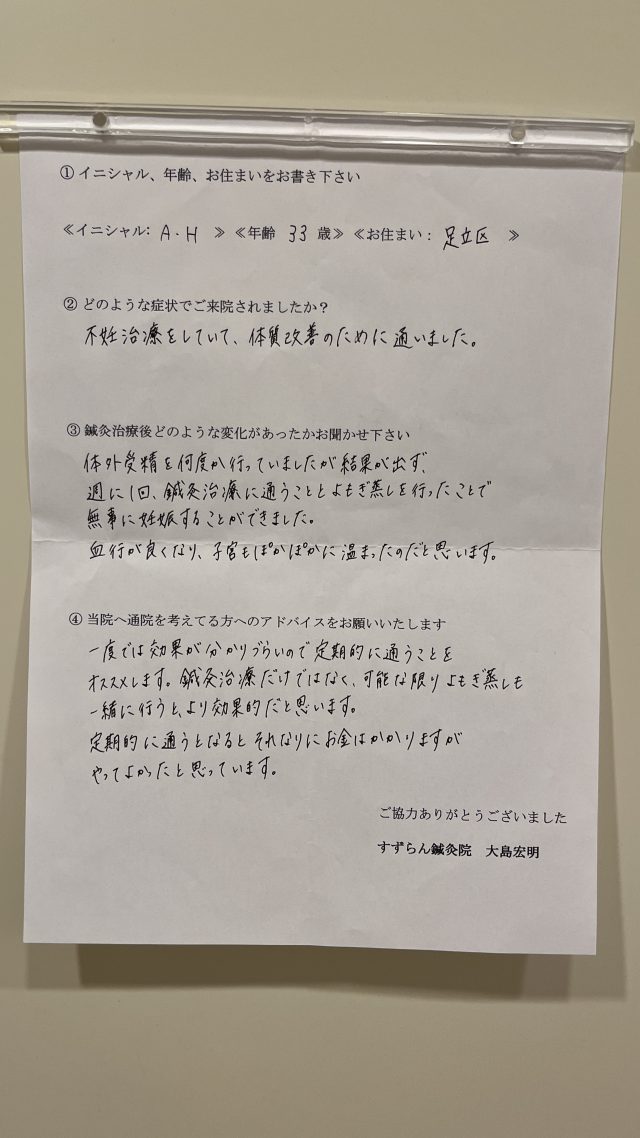 ① イニシャル、年齢、お住まいをお書き下さい
≪イニシャル: A.H ≫ ≪年齢 33 歳≫ ≪お住まい： 足立区 ≫
② どのような症状でご来院されましたか？
不妊治療をしていて、体質改善のために通いました。
③ 鍼灸治療後どのような変化があったかお聞かせ下さい
体外受精を何度か行っていましたが結果が出ず、
週に1回、鍼灸治療に通うこととよもぎ蒸しを行ったことで
無事に妊娠することができました。
血行が良くなり、子宮もぽかぽかに温まったのだと思います。
④ 当院へ通院を考えてる方へのアドバイスをお願いいたします
一度では効果が分かりづらいので定期的に通うことを
オススメします。鍼灸治療だけではなく、可能な限りよもぎ蒸しも
一緒に行うと、より効果的だと思います。
定期的に通うとなるとそれなりにお金はかかりますが
やってよかったと思っています。
ご協力ありがとうございました
すずらん鍼灸院　大島宏明